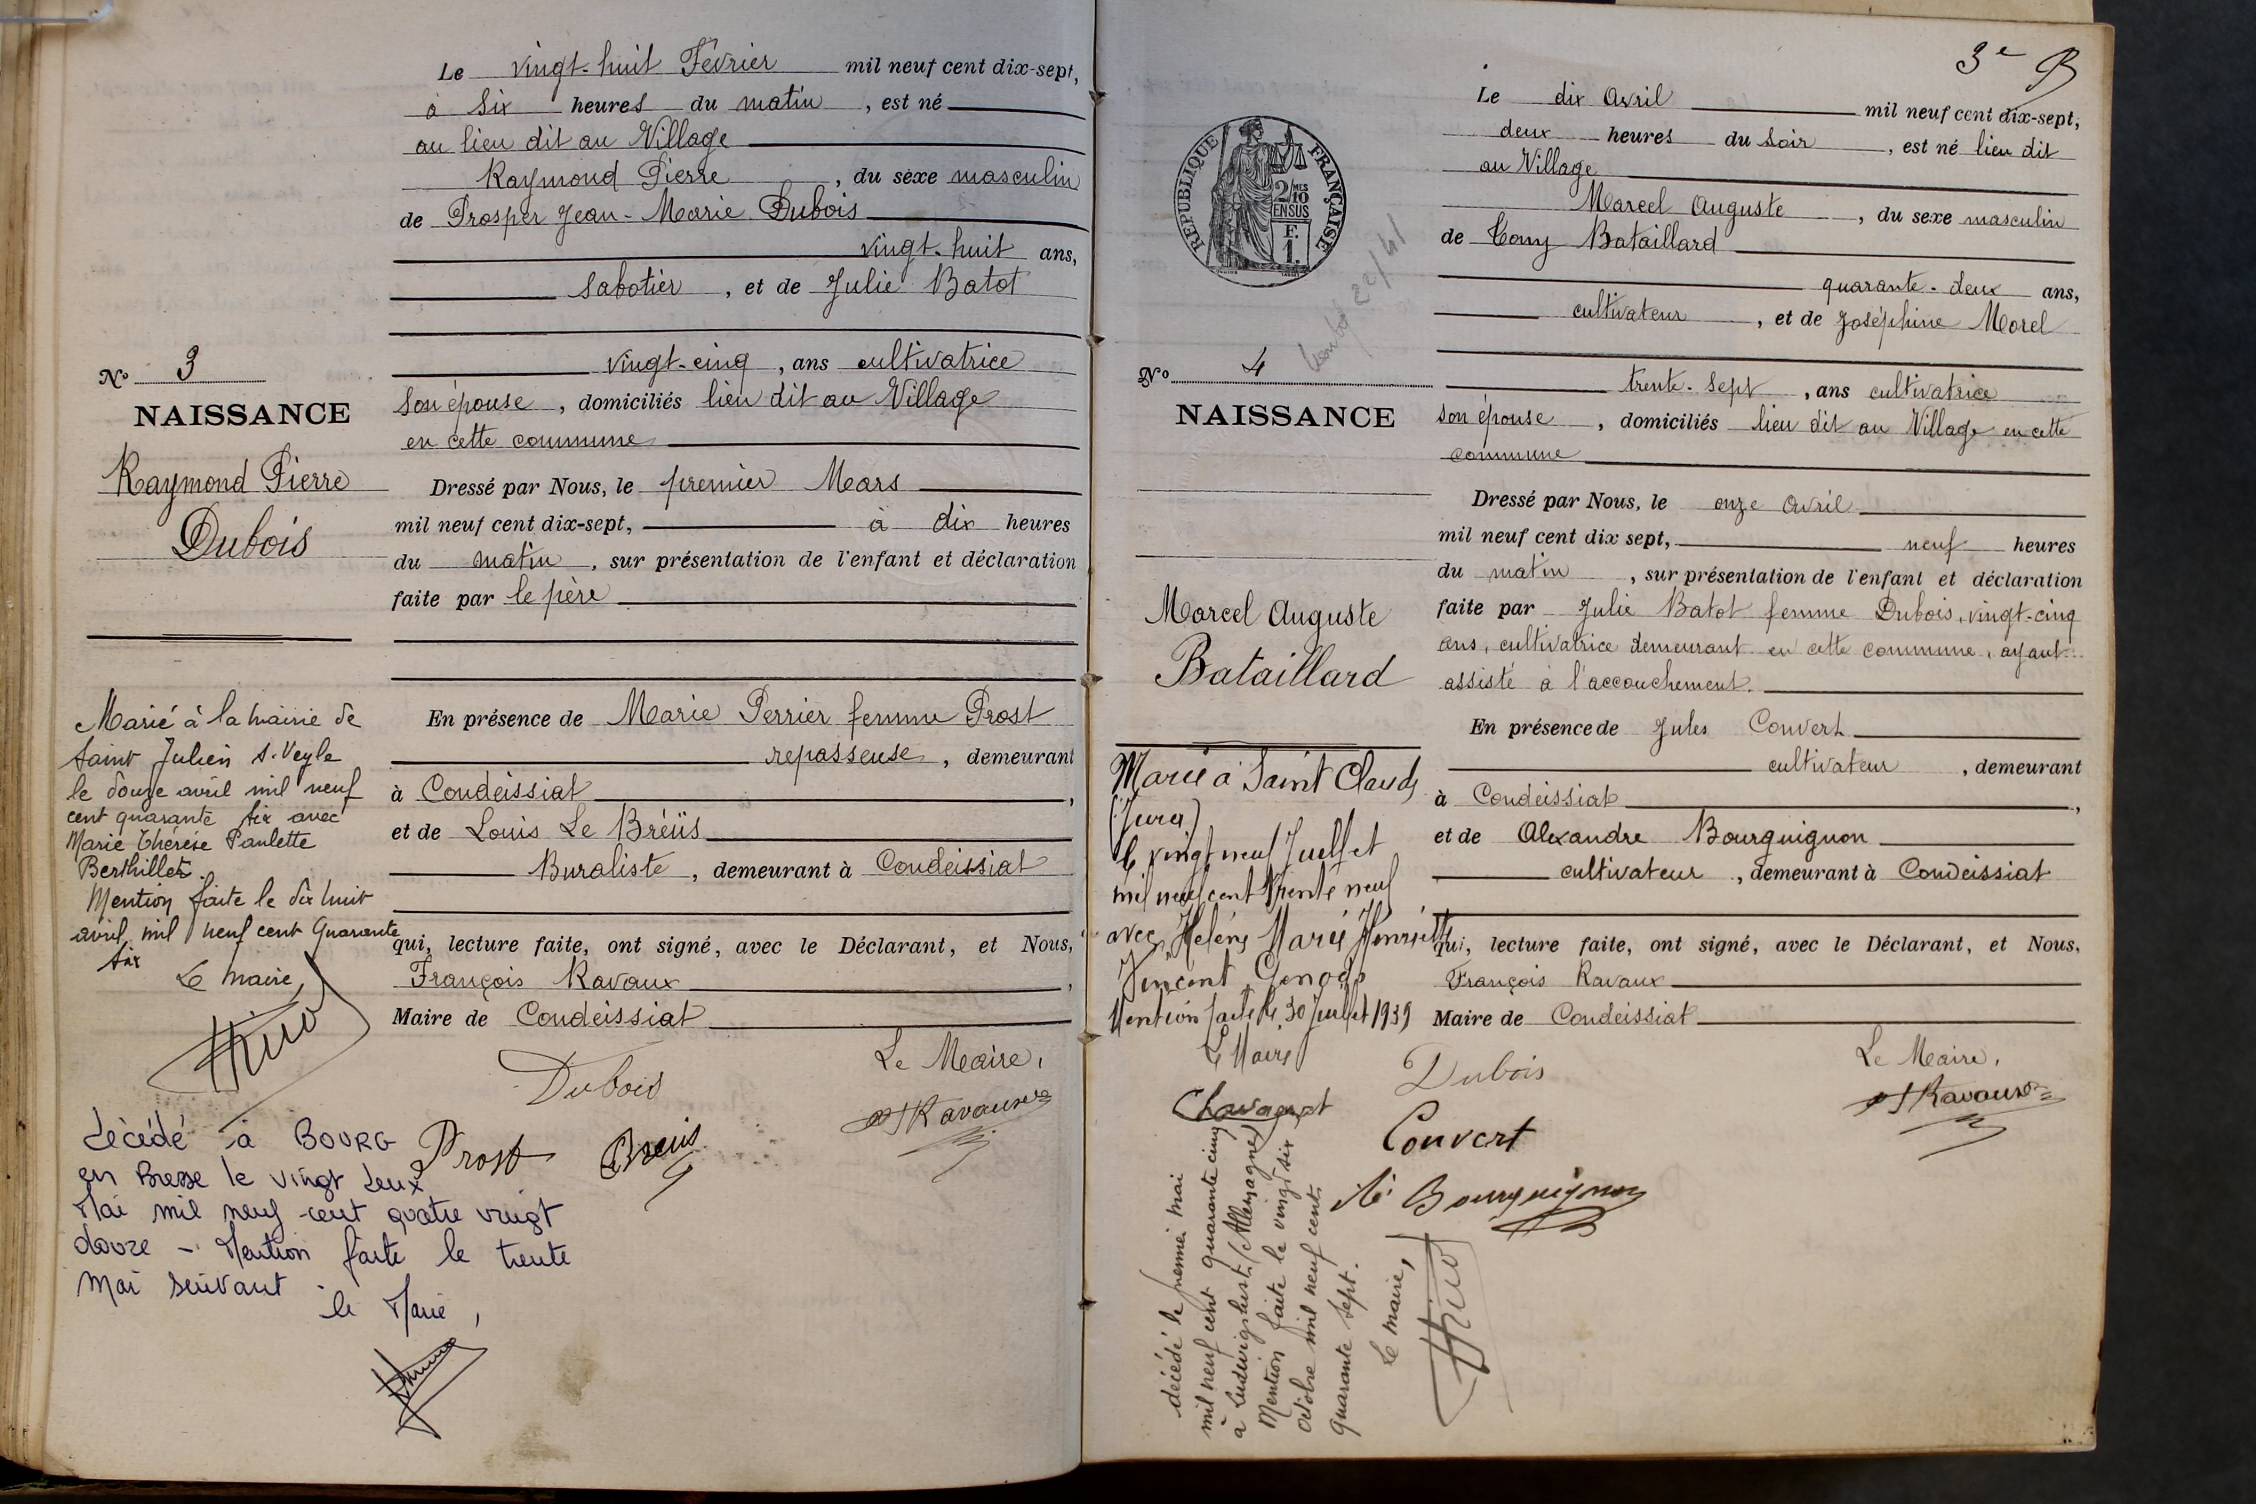 Le vingt-huit Février mil neuf cent dix-sept,
à six heures du matin, est né
au lieu dit au Village
Raymond Pierre, du sexe masculin
de Prosper Jean-Marie Dubois
vingt-huit ans,
sabotier, et de Julie Batot
vingt-cinq, ans cultivatrice
son épouse, domiciliés lieu dit au Village
en cette commune
Dressé par Nous, le premier Mars
mil neuf cent dix-sept, à dix heures
du matin, sur présentation de l'enfant et déclaration
faite par le père
En présence de Marie Perrier femme Prost
repasseuse, demeurant
à Condeissiat,
et de Louis Le Bréüs
Buraliste, demeurant à Condeissiat
qui, lecture faite, ont signé, avec le Déclarant, et Nous,
François Ravaux,
Maire de Condeissiat
Le Maire,
Dubois
Prost Breüs Ravaux
N° 3
NAISSANCE
Raymond Pierre
Dubois
Marié à la mairie de
Saint Julien s. Veyle
le douze avril mil neuf
cent quarante six avec
Marie Thérèse Paulette
Berthillet.
Mention faite le dix huit
avril mil neuf cent quarante
six
Le maire,
décédé à BOURG
en Bresse le vingt deux
Mai mil neuf cent quatre vingt
douze - Mention faite le trente
Mai suivant.
le Maire,
3e B
Le dix Avril mil neuf cent dix-sept,
deux heures du soir, est né lieu dit
au Village
Marcel Auguste, du sexe masculin
de Tony Bataillard
quarante-deux ans,
cultivateur, et de Joséphine Morel
trente-sept, ans cultivatrice
son épouse, domiciliés lieu dit au Village en cette
commune
Dressé par Nous, le onze Avril
mil neuf cent dix sept, neuf heures
du matin, sur présentation de l'enfant et déclaration
faite par Julie Batot femme Dubois, vingt-cinq
ans, cultivatrice demeurant en cette commune, ayant
assisté à l'accouchement.
En présence de Jules Convert
cultivateur, demeurant
à Condeissiat,
et de Alexandre Bourguignon
cultivateur, demeurant à Condeissiat
qui, lecture faite, ont signé, avec le Déclarant, et Nous,
François Ravaux
Maire de Condeissiat
Le Maire,
Dubois
Ravaux
Convert
A. Bourguignon
RÉPUBLIQUE FRANÇAISE
2/10MES
EN SUS
F.
1.
N° 4
NAISSANCE
Marcel Auguste
Bataillard
Marié à Saint Claude
(Jura)
le vingt neuf Juillet
mil neuf cent trente neuf
avec Hélène Marie Henriette
Vincent
Mention faite le 30 Juillet 1939
Le Maire
Chavagnat
décédé le premier mai
mil neuf cent quarante cinq
à Ludwigslust (Allemagne)
Mention faite le vingt six
octobre mil neuf cent
quarante sept.
Le maire,